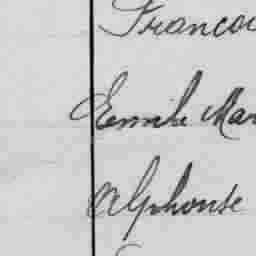 Francoi
Emile Mar
Alphonse